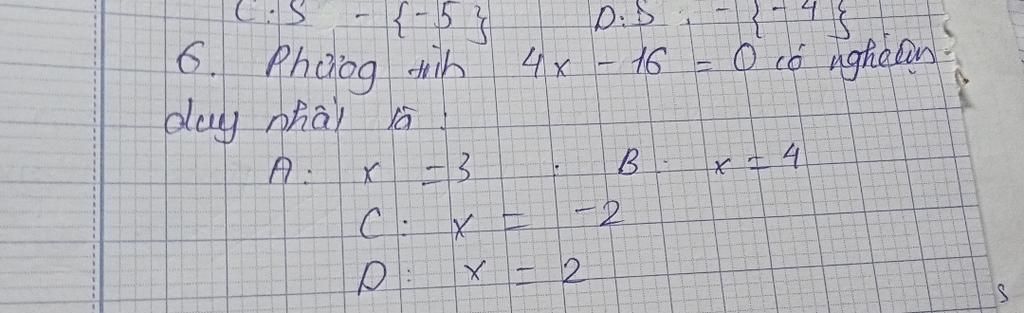 C: S = {-5} D: S = {-4}
6. Phương trình 4x - 16 = 0 có nghiệm
duy nhất là :
A: x = 3 . B: x = 4
C: x = -2
D: x = 2
s